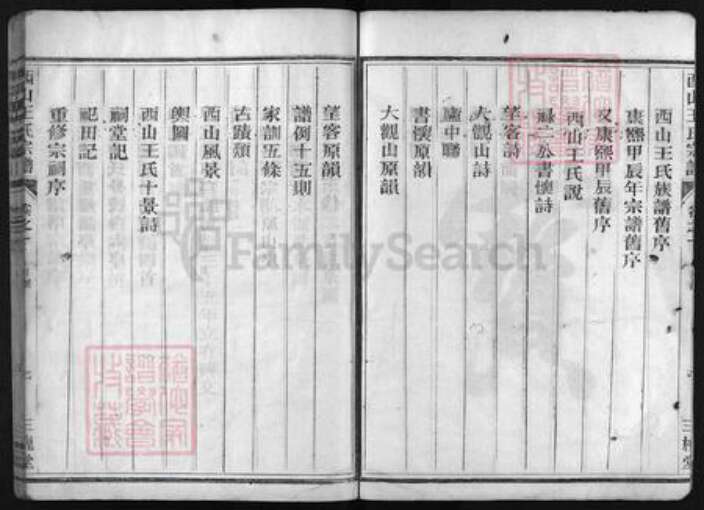 西山王氏宗譜
西山王氏族譜舊序
康熙甲辰年宗譜舊序
又康熙甲辰舊序
西山王氏說
祿二公書懷詩
望客詩
大觀山詩
書懷原韻
大觀山原韻
望客原韻
譜例十五則
家訓五條
古蹟類
西山風景
輿圖
西山王氏十景詩
祠堂記
祀田記
重修宗祠序
西山王氏宗譜
三槐堂
三槐堂
FamilySearch